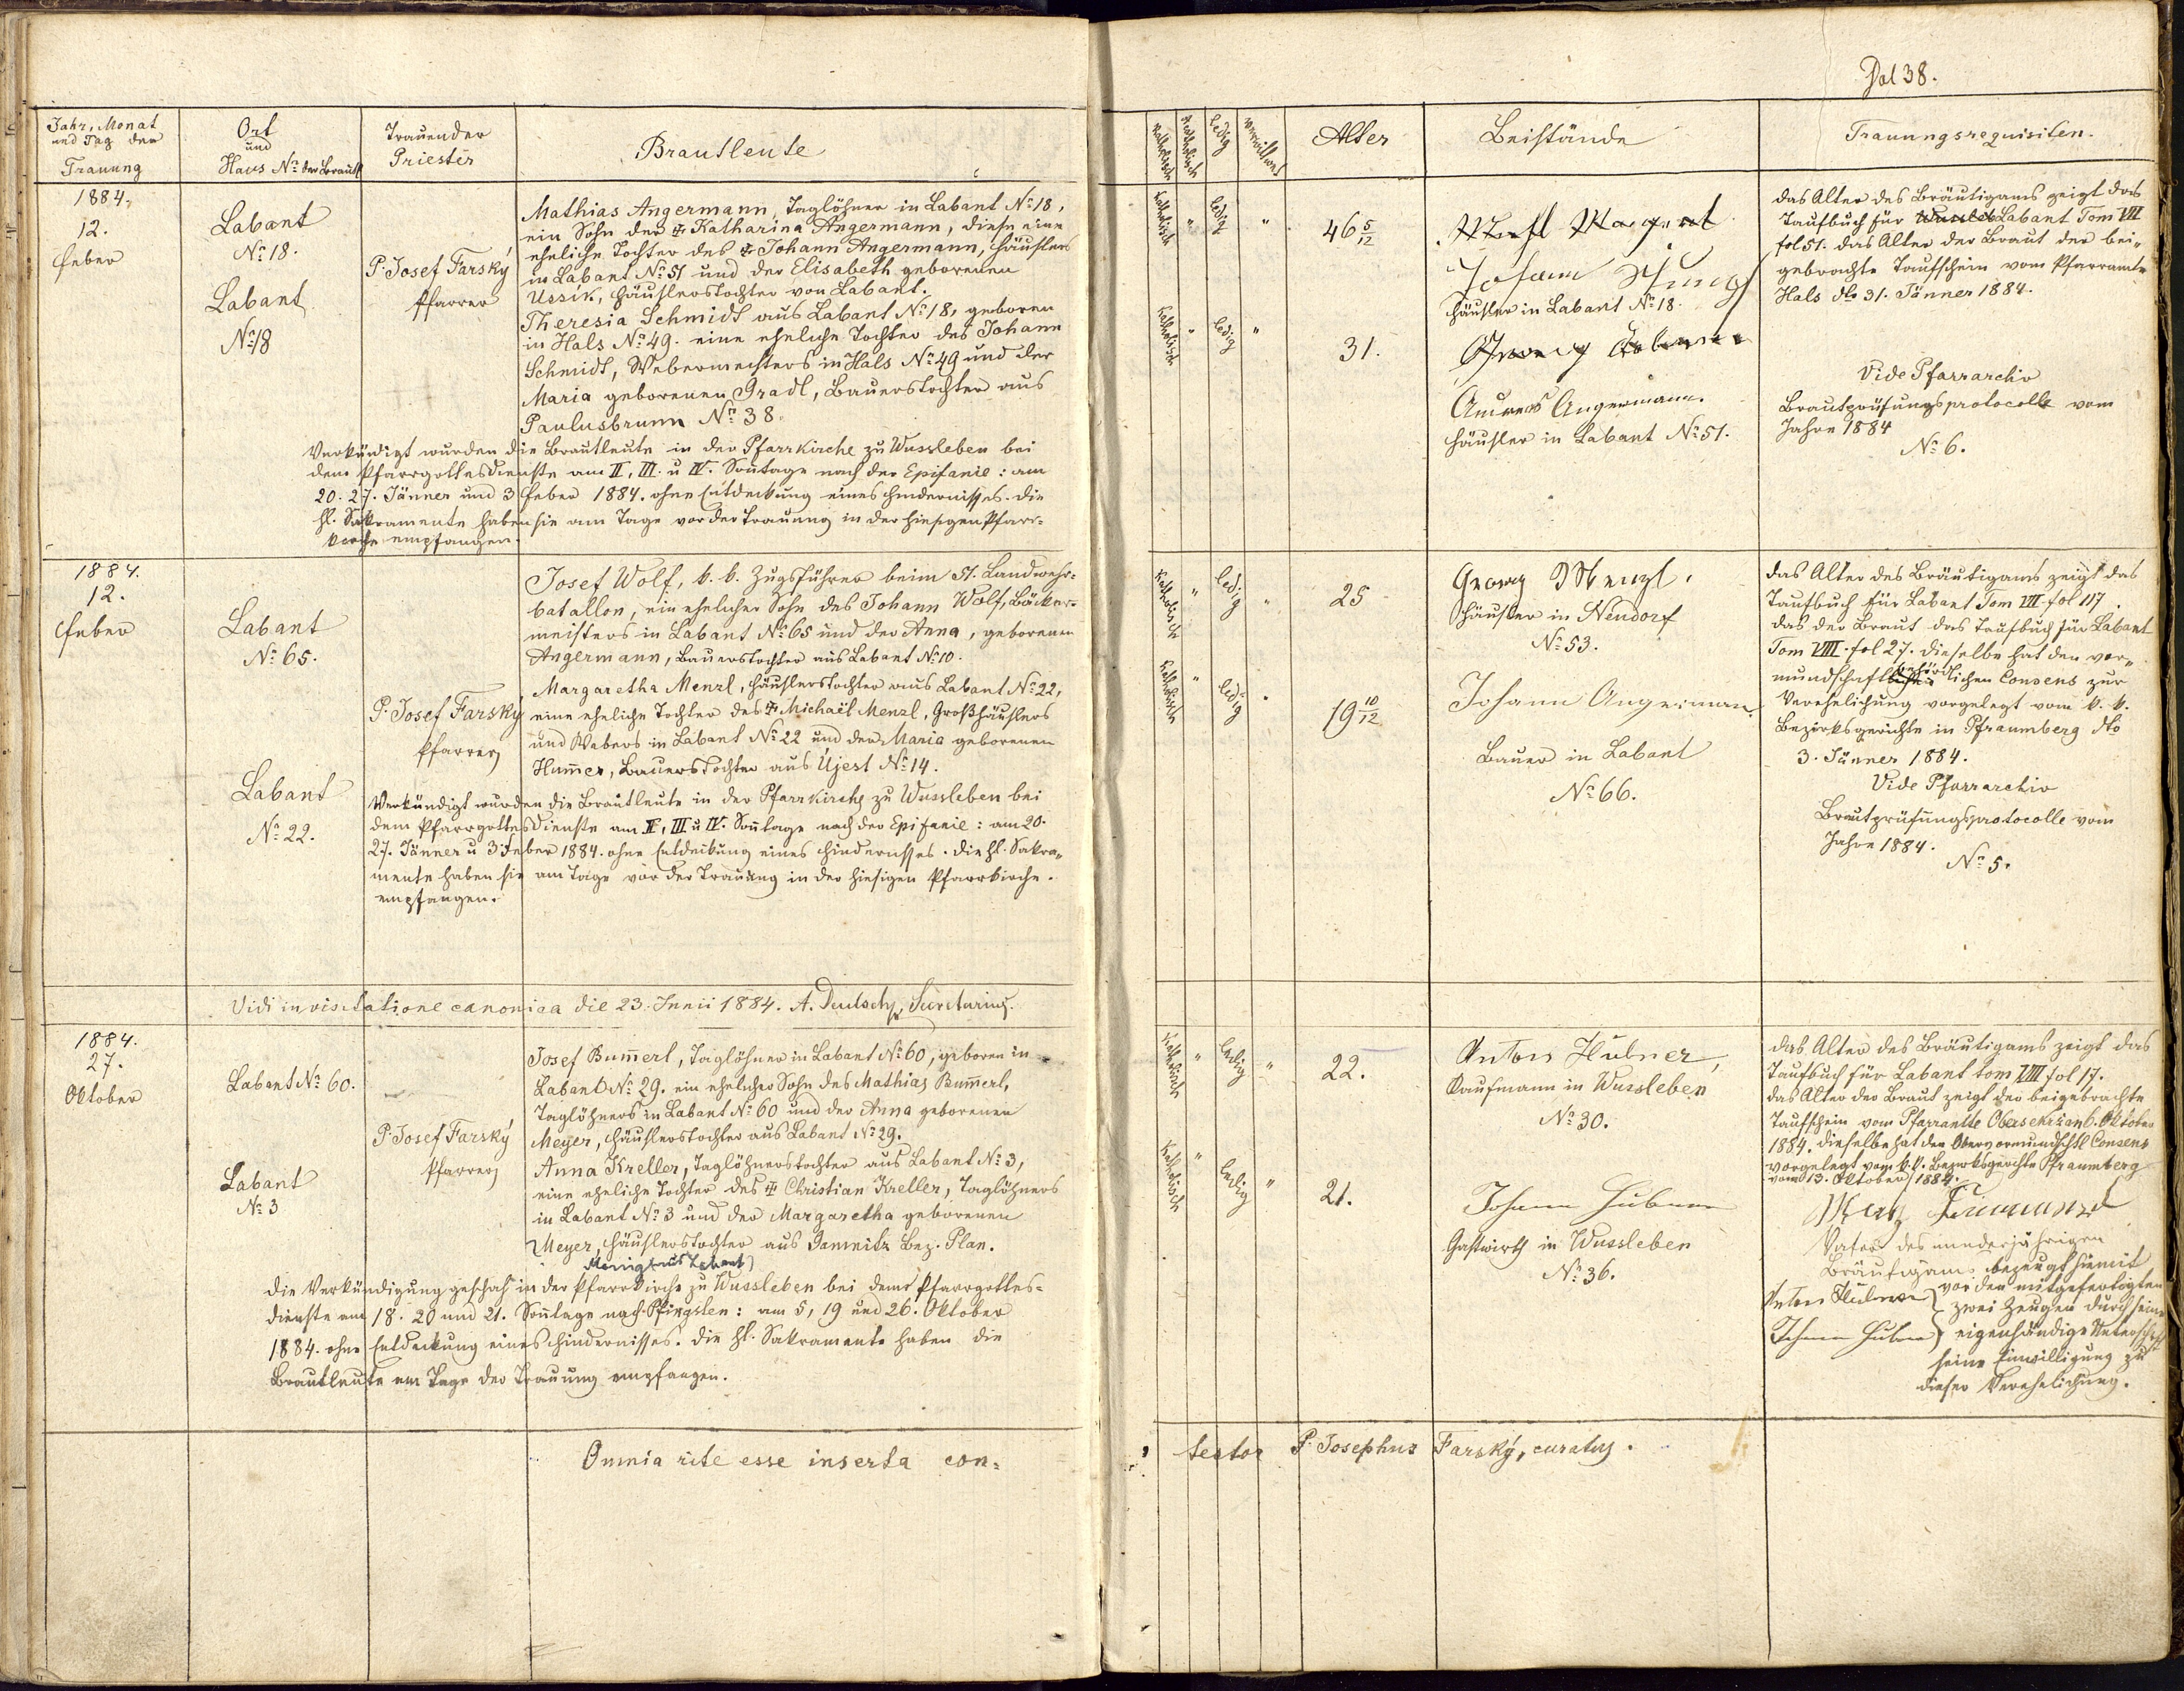 Fol 38.
Jahr, Monat
und Tag der
Trauung
Ort
und
Haus No der Brautl.
Trauender
Priester
Brautleute
Katholisch
ledig
verwittwet
Alter
Beistände
Trauungsrequisiten.
1884.
12.
Feber
Labant
No 18.
Labant
No 18
P. Josef Farský
Pfarrer
Mathias Angermann, Taglöhner in Labant No 18,
ein Sohn der ☩ Katharina Angermann, diese eine
eheliche Tochter des ☩ Johann Angermann, Häuslers
in Labant No 51 und der Elisabeth geborenen
Ussik, Häuslerstochter von Labant.
Theresia Schmidt aus Labant No 18, geboren
in Hals No 49. eine eheliche Tochter des Johann
Schmidt, Webermeisters in Hals No 49 und der
Maria geborenen Gradl, Bauerstochter aus
Paulusbrunn No 38.
Verkündigt wurden die Brautleute in der Pfarrkirche zu Wussleben bei
dem Pfarrgottesdienste am II, III. u IV. Sonntage nach der Epifanie: am
20. 27. Jänner und 3 Feber 1884. ohne Entdeckung eines Hindernisses. Die
hl. Sakramente haben sie am Tage vor der Trauung in der hiesigen Pfarr-
kirche empfangen.
katholisch " ledig " 46 5/12
katholisch " ledig " 31.
Johann
Häusler in Labant No 18.
Andreas Angermann.
Häusler in Labant No 51.
das Alter des Bräutigams zeigt das
Taufbuch für Labant Tom VII
fol 51. das Alter der Braut der bei-
gebrachte Taufschein vom Pfarramte
Hals dto 31. Jänner 1884.
Vide Pfarrarchiv
Brautprüfungsprotocolle vom
Jahre 1884
No 6.
1884.
12.
Feber
Labant
No 65.
Labant
No 22.
P. Josef Farský
Pfarrer
Josef Wolf, k. k. Zugsführer beim 51. Landwehr-
batallon, ein ehelicher Sohn des Johann Wolf, Bäcker-
meisters in Labant No 65 und der Anna, geborenen
Angermann, Bauerstochter aus Labant No 10.
Margaretha Menzl, Häuslerstochter aus Labant No 22,
eine eheliche Tochter des ☩ Michael Menzl, Großhäuslers
und Webers in Labant No 22 und der Maria geborenen
Hum̄er, Bauerstochter aus Ujest No 14.
Verkündigt wurden die Brautleute in der Pfarrkirche zu Wussleben bei
dem Pfarrgottesdienste am II, III u IV. Son̄tage nach der Epifanie: am 20.
27. Jänner u 3 Feber 1884. ohne Entdeckung eines Hindernisses. Die hl. Sakra-
mente haben sie am Tage vor der Trauung in der hiesigen Pfarrkirche.
empfangen.
katholisch " ledig " 25
katholisch " ledig " 19 10/12
Georg Menzl,
Häusler in Neudorf
No 53.
Johann Angermann.
Bauer in Labant
No 66.
das Alter des Bräutigams zeigt das
Taufbuch für Labant Tom VIII fol 117.
das der Braut das Taufbuch für Labant
Tom VIII. fol 27. dieselbe hat den vor-
mundschaftbehördlichen Consens zur
Verehelichung vorgelegt vom k. k.
Bezirksgerichte in Pfraumberg dto
3. Jänner 1884.
Vide Pfarrarchiv
Brautprüfungsprotocolle vom
Jahre 1884.
No 5.
Vidi in visitatione canonica die 23. Junii 1884. A. Deutsch, Secretarius.
1884.
27.
Oktober
Labant No 60.
Labant
No 3
P. Josef Farský
Pfarrer
Josef Bum̄erl, Taglöhner in Labant No 60, geboren in
Labant No 29. ein ehelicher Sohn des Mathias Bum̄erl,
Taglöhners in Labant No 60 und der Anna geborenen
Meyer, Häuslerstochter aus Labant No 29.
Anna Kreller, Taglöhnerstochter aus Labant No 3,
eine eheliche Tochter des ☩ Christian Kreller, Taglöhners
in Labant No 3 und der Margaretha geborenen
Meyer, Häuslerstochter aus Damnitz Bez. Plan.
die Verkündigung geschah in der Pfarrkirche zu Wussleben bei dem Pfarrgottes-
dienste am 18. 20 und 21. Son̄tage nach Pfingsten: am 5, 19 und 26. Oktober
1884. ohne Entdeckung eines Hindernisses. Die hl. Sakramente haben die
Brautleute am Tage der Trauung empfangen.
katholisch " ledig " 22.
katholisch " ledig " 21.
Anton Hübner,
Kaufmann in Wussleben
No 30.
Johann Hübner
Gastwirth in Wussleben
No 36.
das Alter des Bräutigams zeigt das
Taufbuch für Labant tom VIII fol 17.
das Alter der Braut zeigt der beigebrachte
Taufschein vom Pfarramte 6. Oktober
1884. dieselbe hat den Obervormundschftl Consens
vorgelegt vom k. k. Bezirksgerichte Pfraumberg
vom 13. Oktober 1884.
Vater des minderjährigen
Bräutigams bezeugt hiemit
Anton Hübner } vor den mitgefertigten
zwei Zeugen durch seine
Johann Hübner } eigenhändige Unterschrift
seine Einwilligung zu
dieser Verehelichung.
Omnia rite esse inserta con-
testor P. Josephus Farský, curatus.